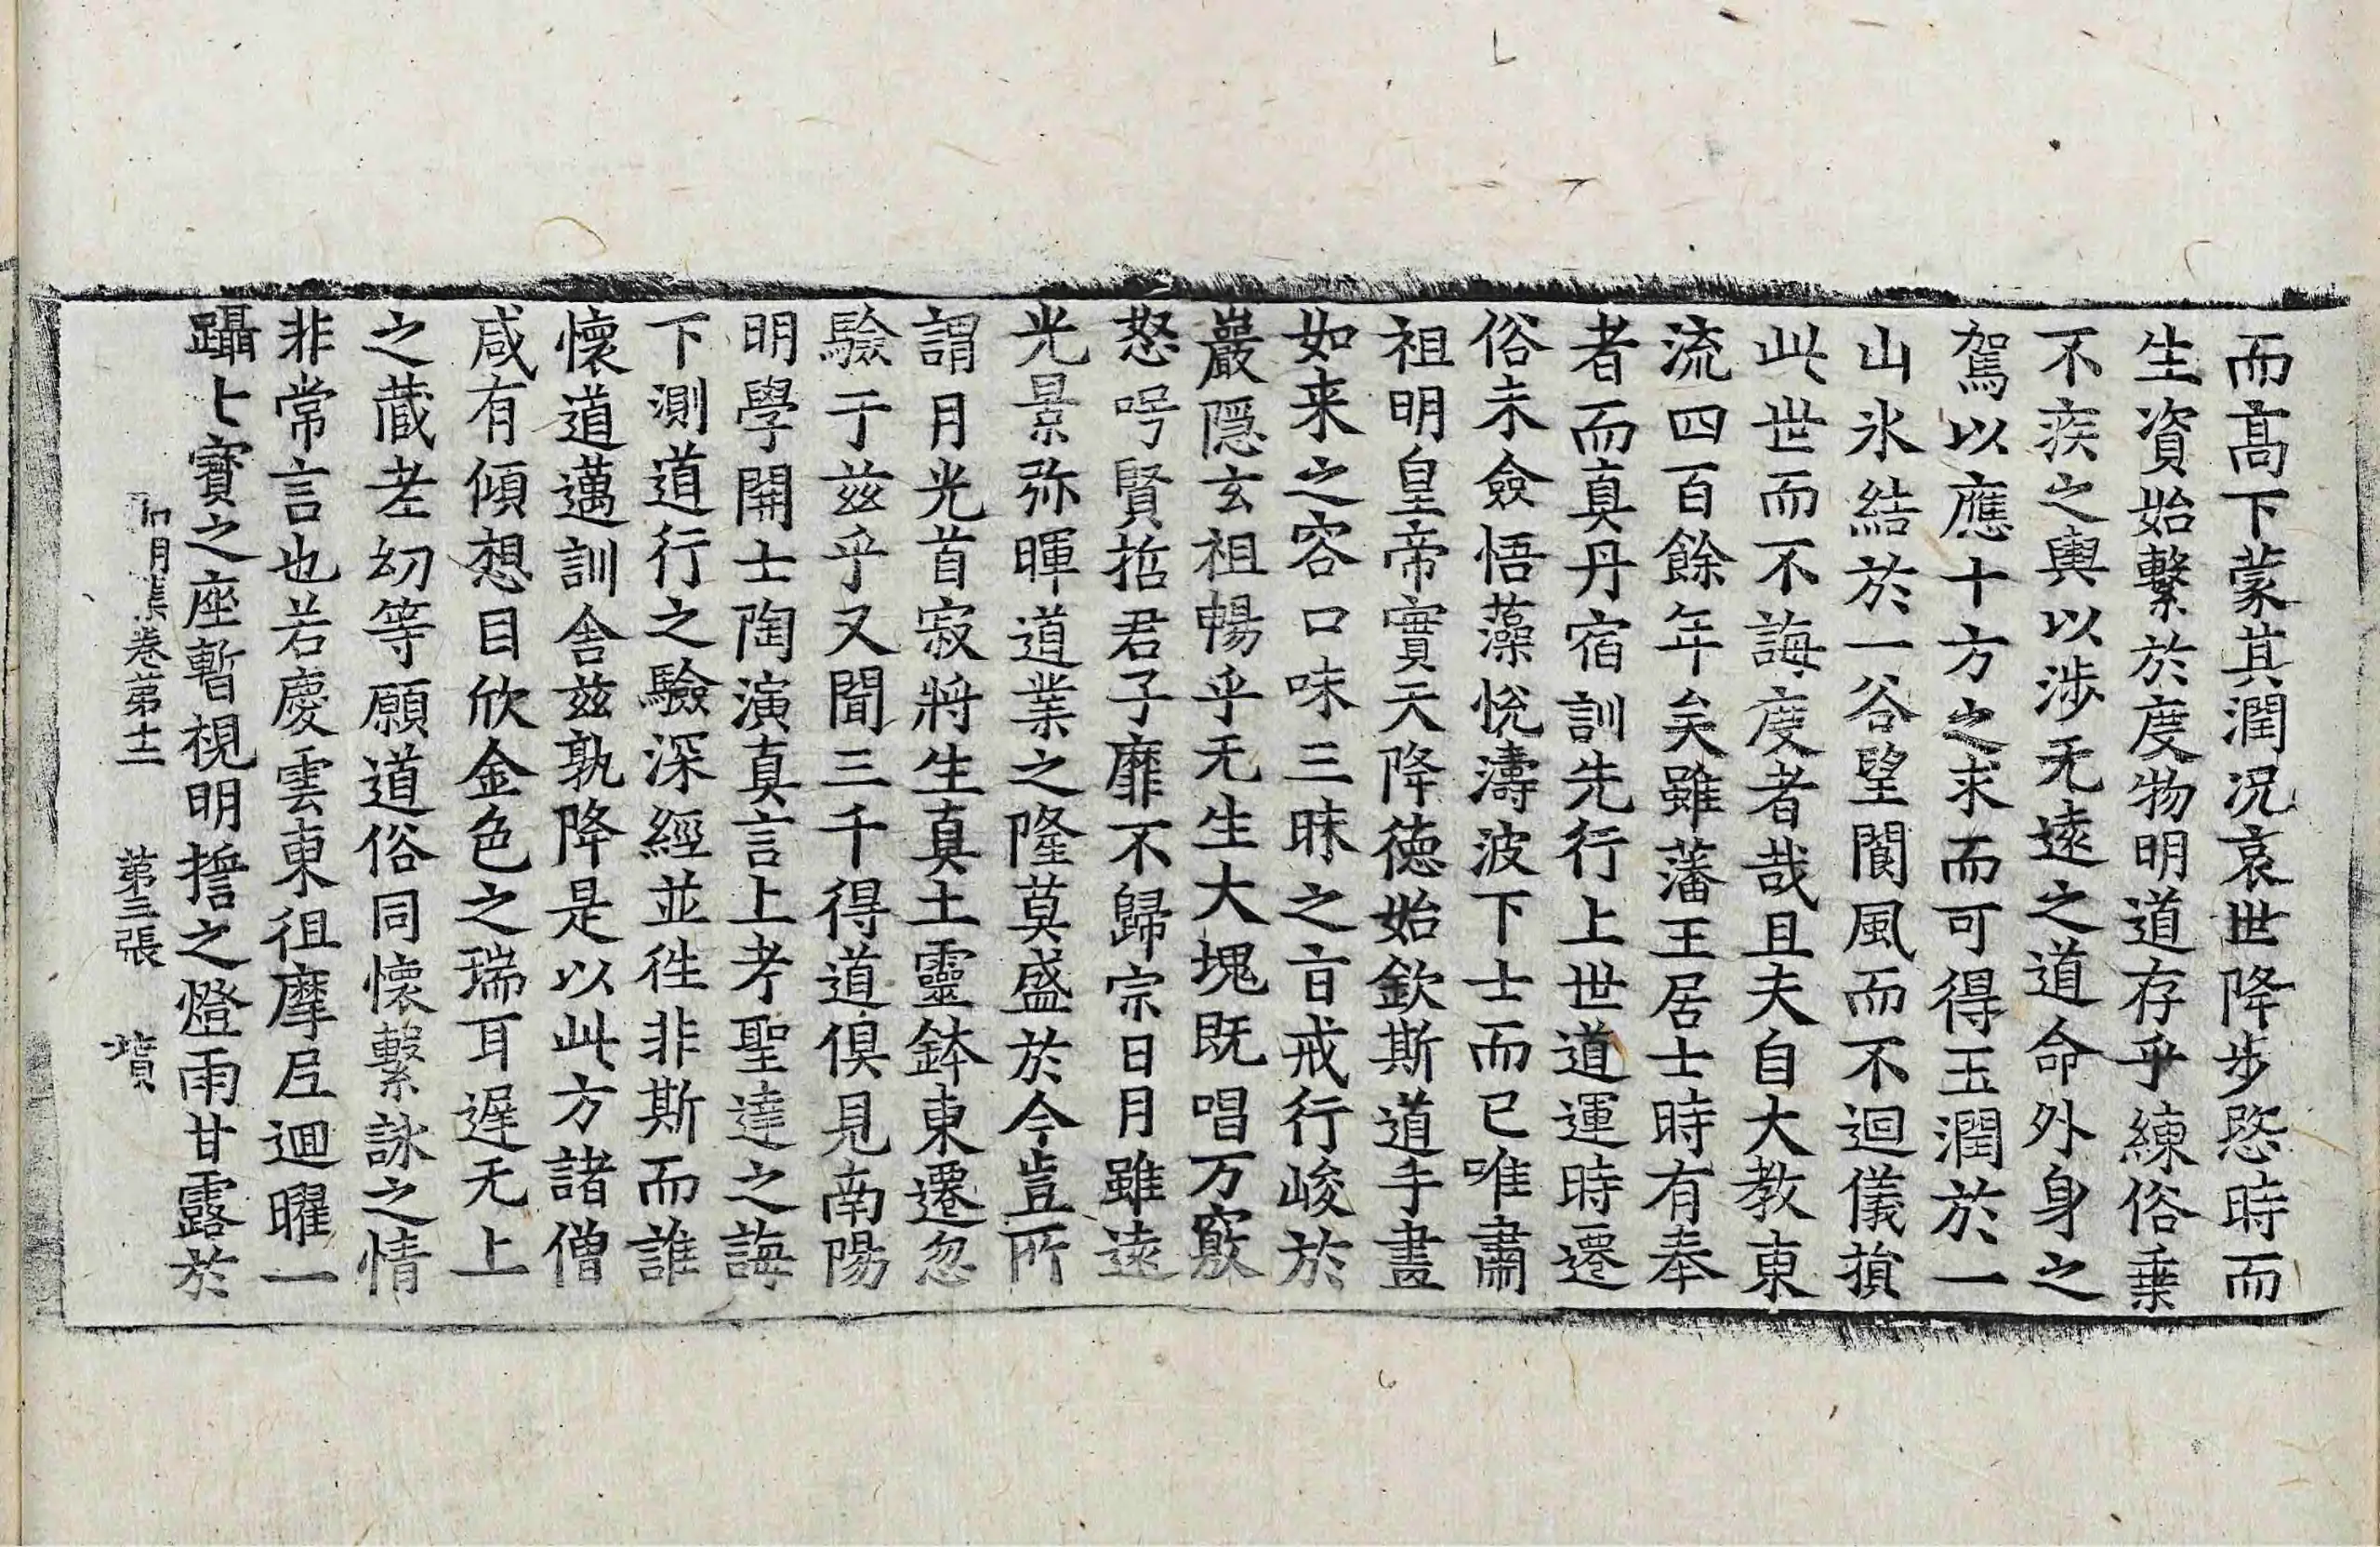 而髙下蒙其潤况哀世降步愍時而
生資始繫於度物明道存乎練俗乗
不疾之輿以涉无遠之道命外身之
駕以應十方之求而可得玉潤於一
山氷結於一谷望閬風而不迴儀損
此世而不誨度者哉且夫自大教東
流四百餘年矣雖藩王居士時有奉
者而真丹宿訓先行上世道運時遷
俗未僉悟藻悅濤波下士而已唯肅
祖明皇帝實天降德始欽斯道手畫
如来之容口味三昧之旨戒行峻於
巖隠玄祖暢乎无生大塊既唱万竅
怒呺賢哲君子靡不歸宗日月雖遠
光景弥暉道業之隆莫盛於今豈所
謂月光首寂將生真土靈鉢東遷忽
驗于兹乎又聞三千得道俱見南陽
明學開士陶演真言上考聖達之誨
下測道行之驗深經並徃非斯而誰
懷道邁訓舍兹孰降是以此方諸僧
咸有傾想目欣金色之瑞耳遲无上
之蔵老㓜等願道俗同懷繫詠之情
非常言也若慶雲東徂摩尼迴曜一
躡七寶之座暫視明誓之燈雨甘露於
弘明集卷第十二 第三張 墳